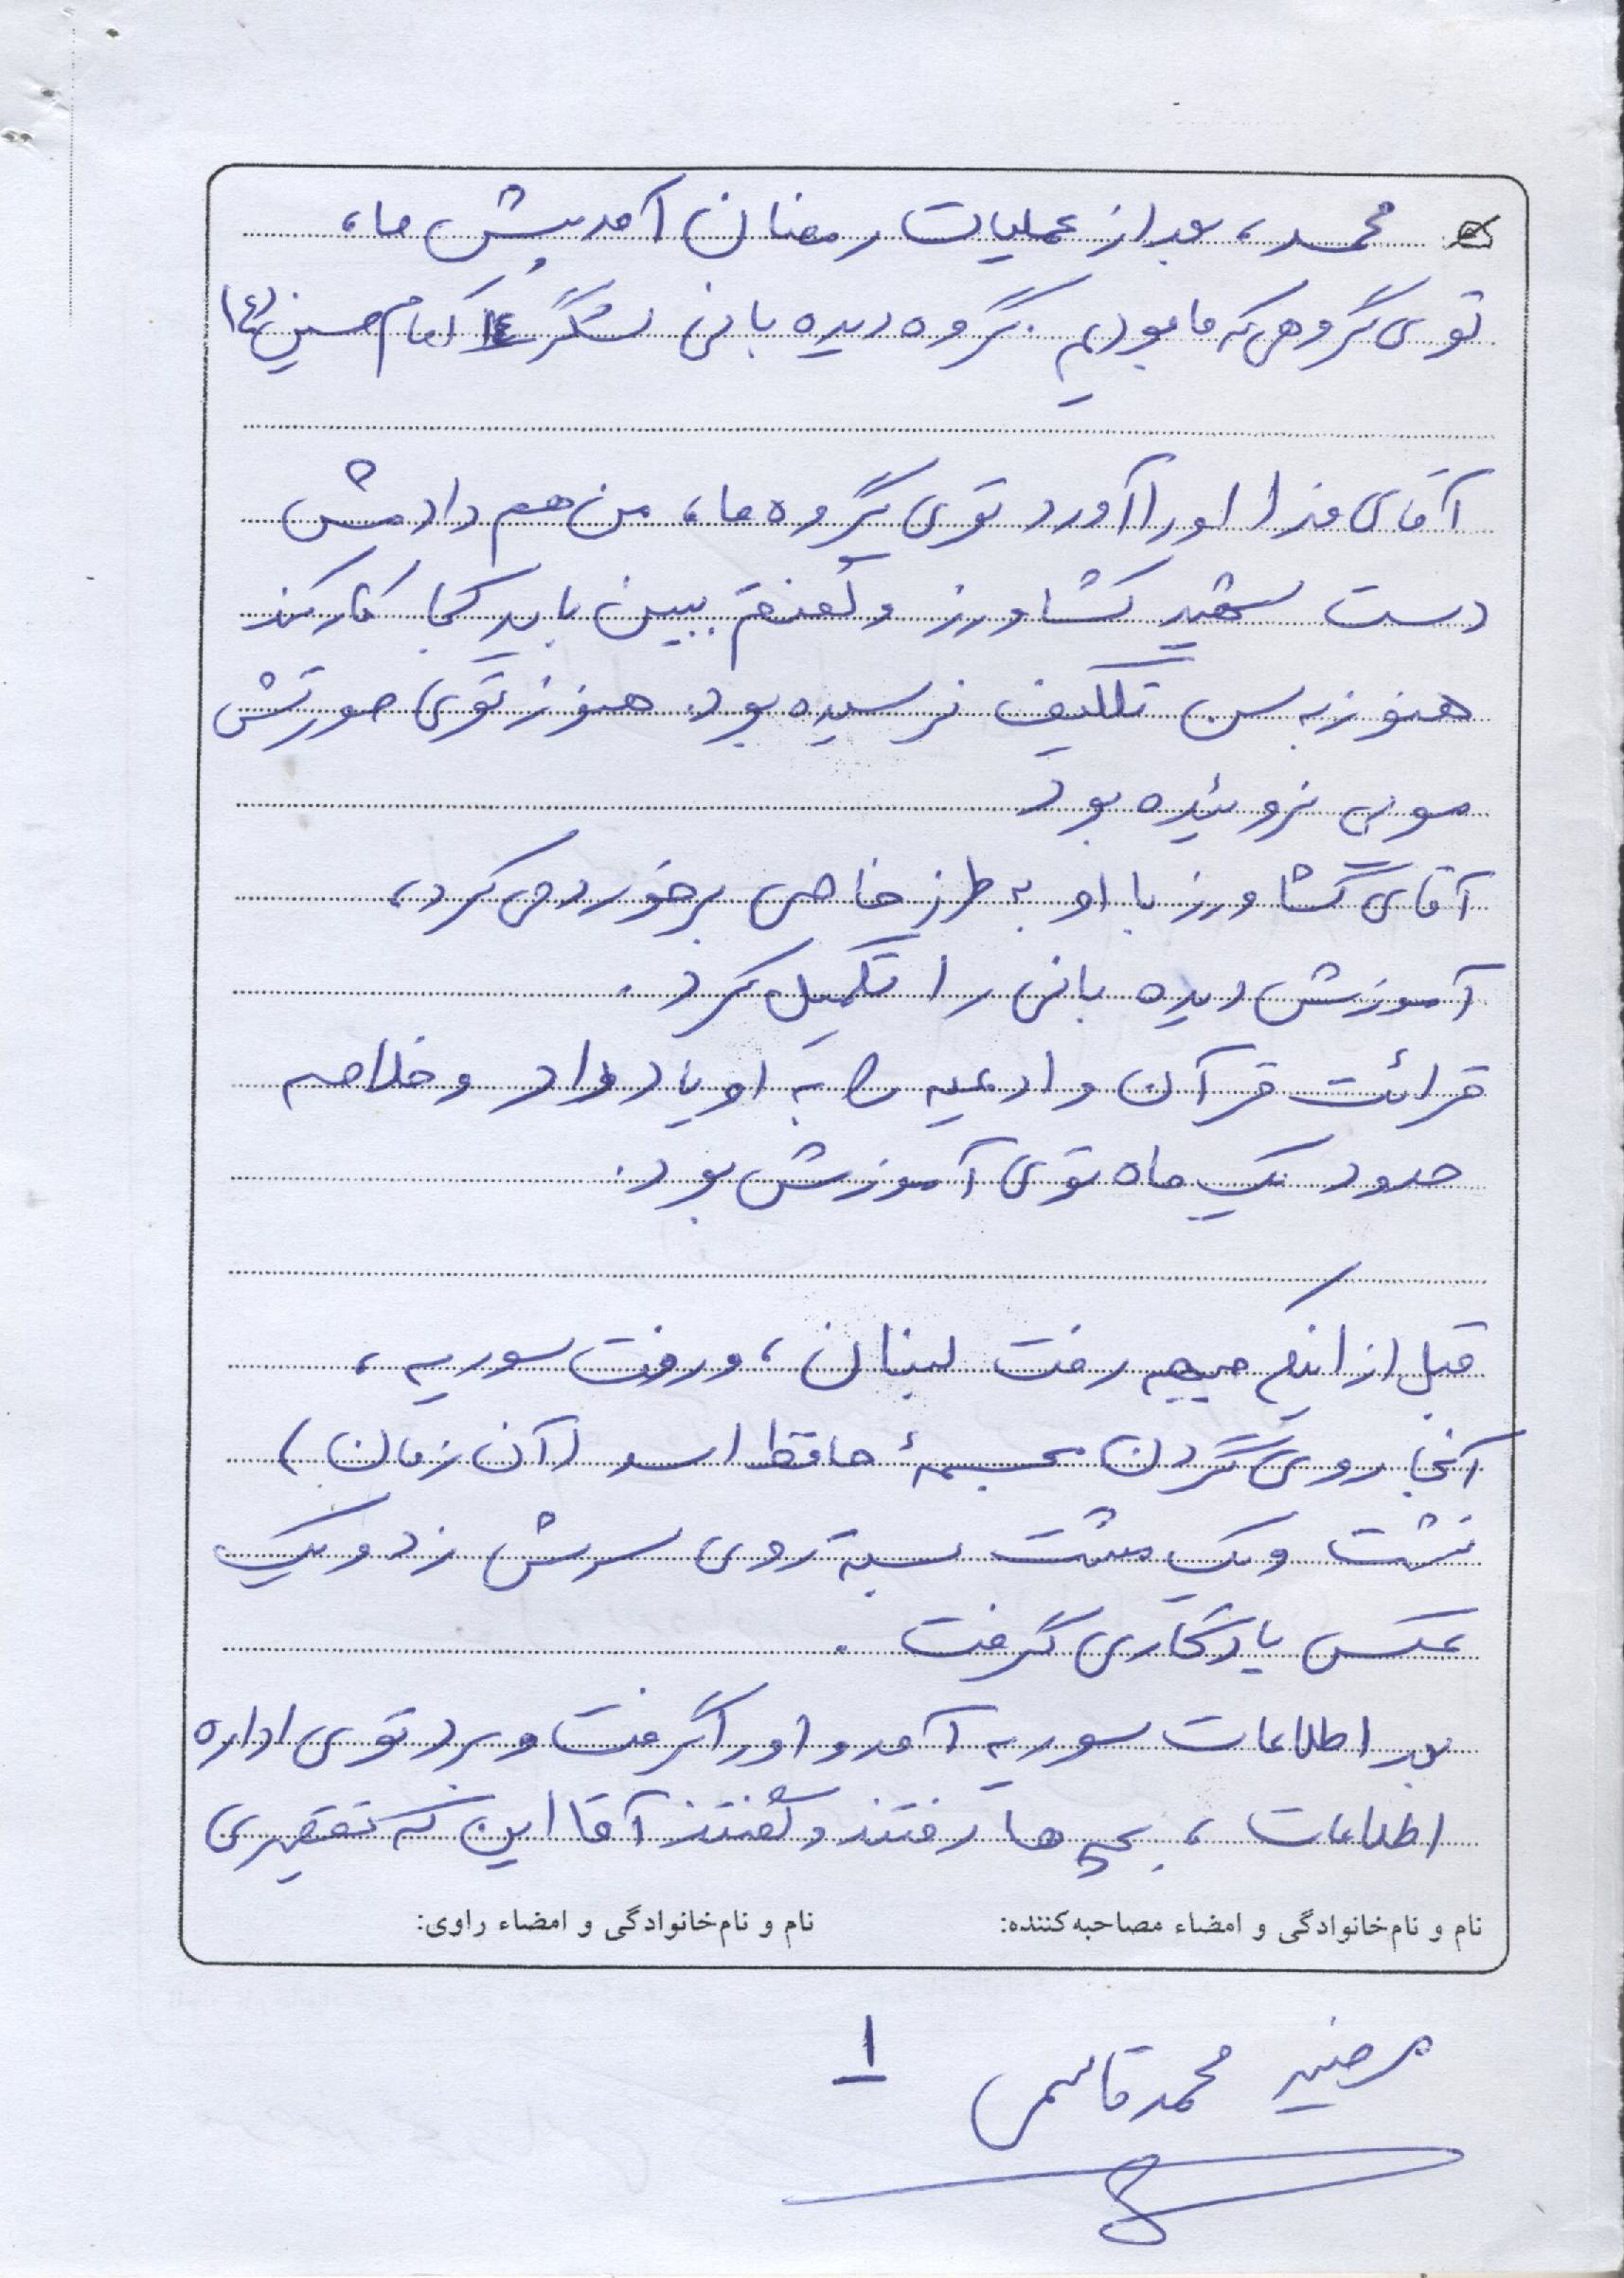 محمد، بعد از عملیات رمضان آمد پیش ما،
توی گروهی که ما بودیم. گروه دیده بانی لشگر ۱۴ امام حسین (ع)
آقای اورا آورد توی گروه ما، من هم دادمش
دست شهید کشاورز و گفتم ببین باید کجا کار کند
هنوز به سن تکلیف نرسیده بود. هنوز توی صورتش
مویی نروئیده بود
آقای کشاورز با او به طرز خاصی برخورد می کرد،
آموزش دیده بانی را تکمیل کرد.
قرائت قرآن و ادعیه را به او یاد داد و خلاصه
حدود یک ماه توی آموزش بود.
قبل از اینکه جبهه رفت لبنان، و رفت سوریه،
آنجا روی گردن مجسمهٔ حافظ اسد (آن زمان)
نشست و یک مشت بسته روی سرش زد و یک
عکس یادگاری گرفت.
بعد اطلاعات سوریه آمد و اورا گرفت و برد توی اداره
اطلاعات، بچه ها رفتند و گفتند آقا این که تقصیری
نام و نام‌خانوادگی و امضاء مصاحبه‌کننده: نام و نام‌خانوادگی و امضاء راوی:
محمد قاسمی ۱